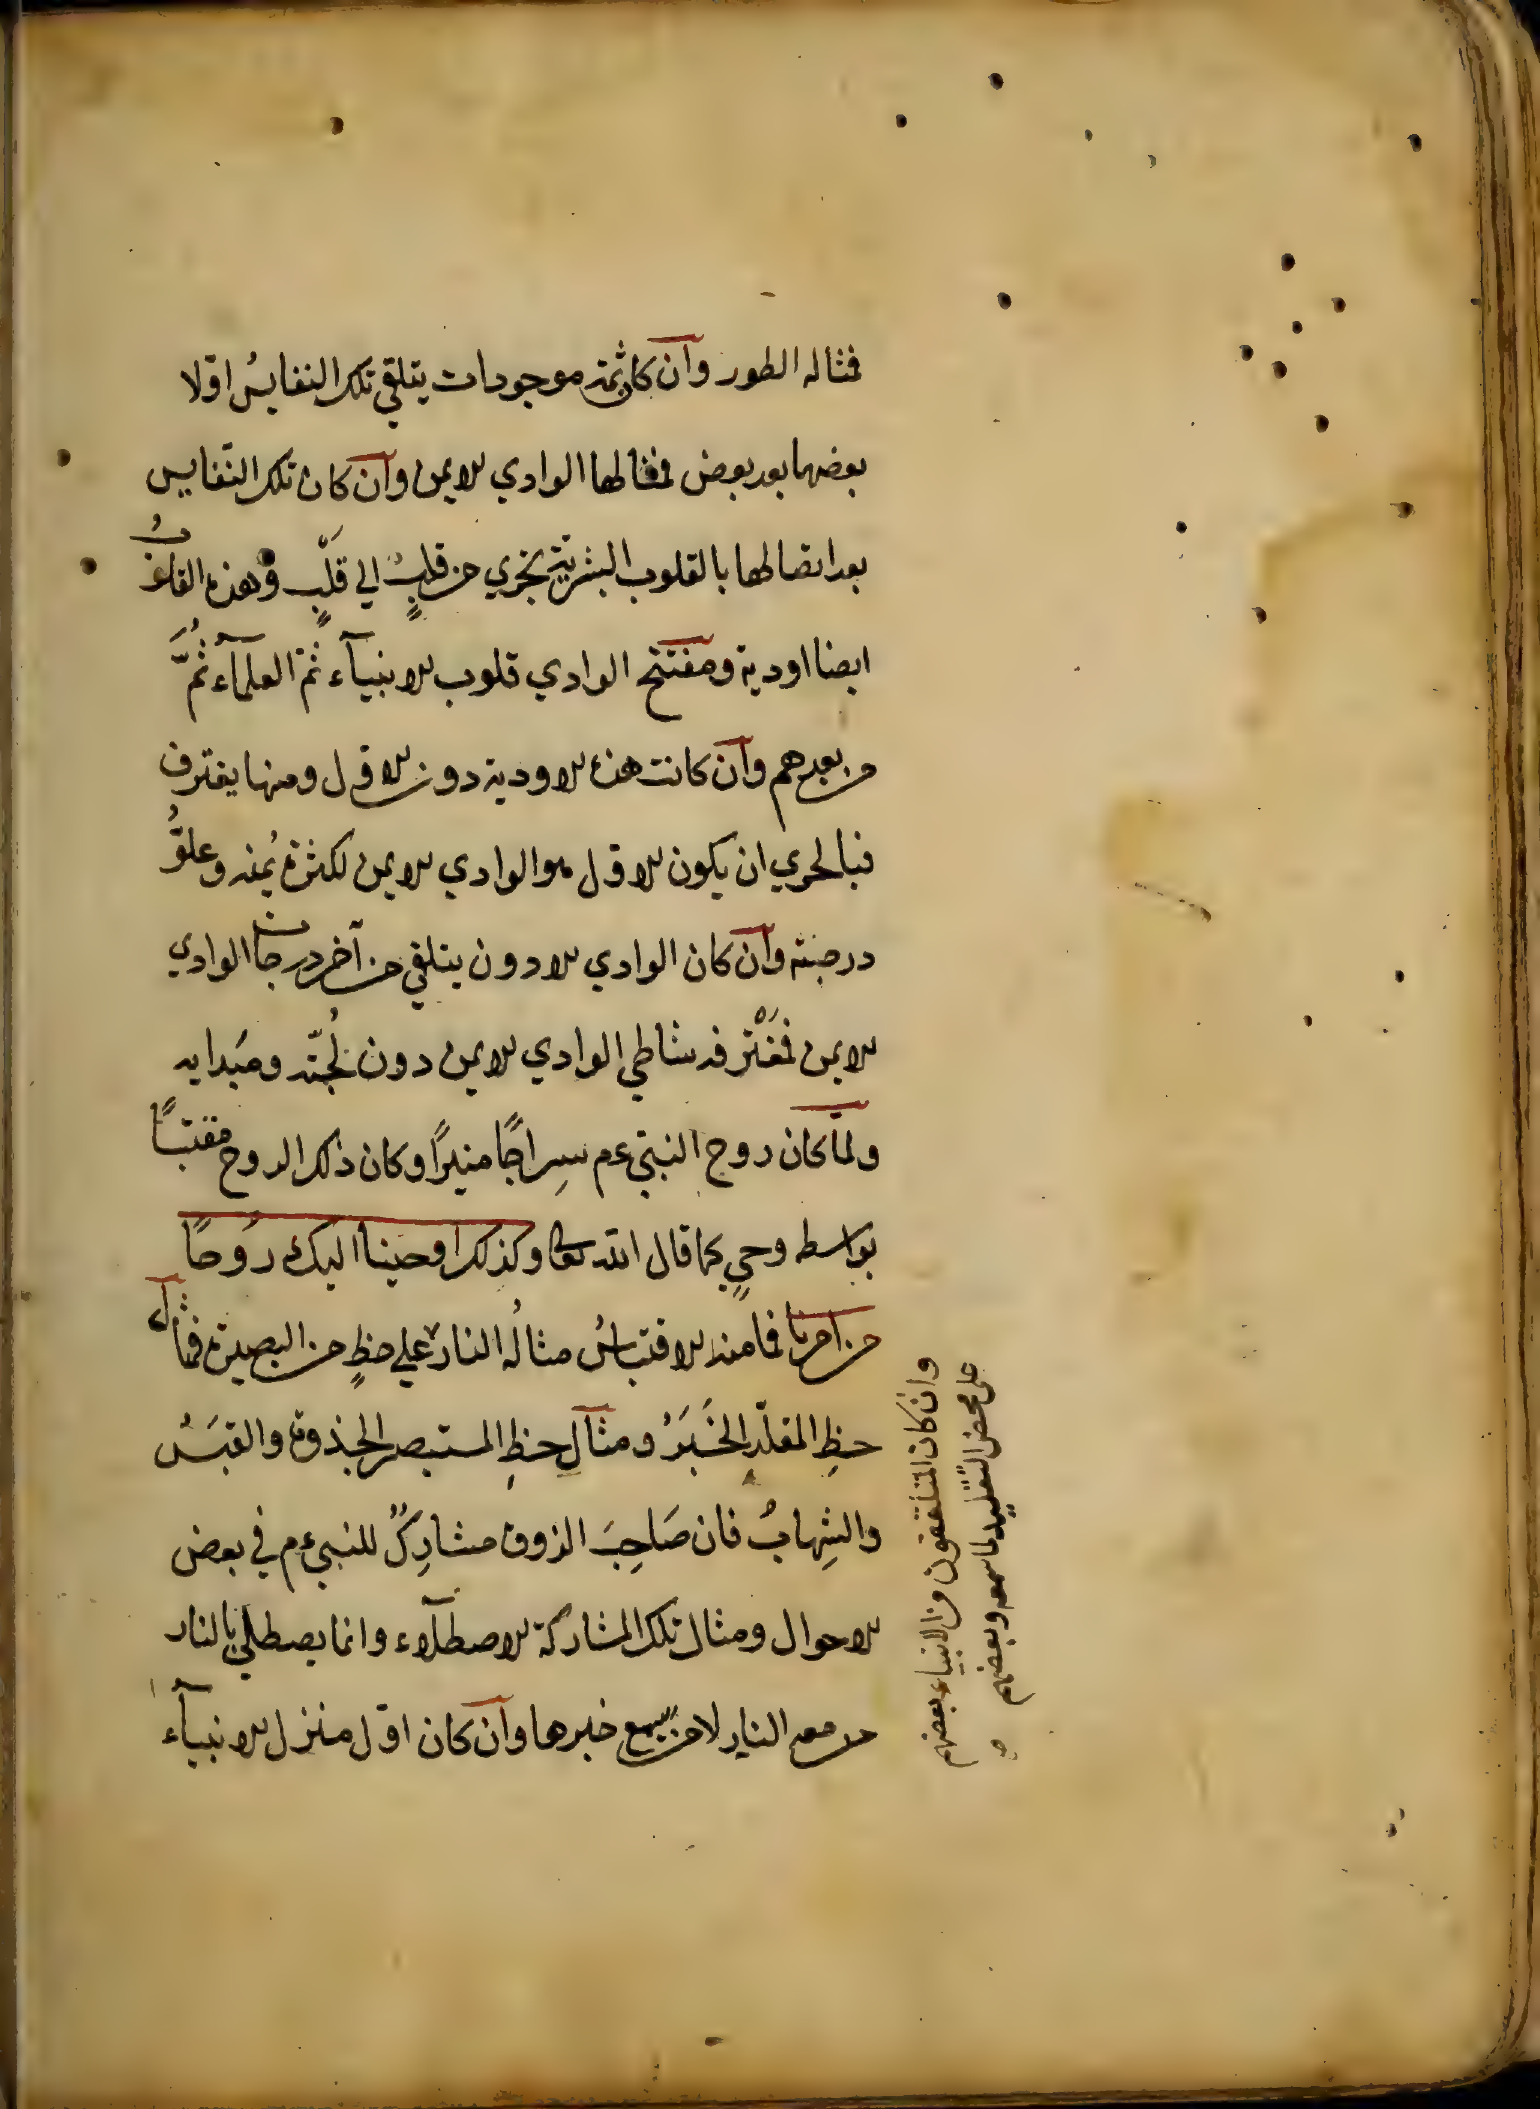 فمثاله الطور وان كان ثمة موجودات يتلقي تلك النفايسُ اوّلا
بعضها بعد بعض فمثالها الوادي الايمن وان كان تلك النّفايس
بعد اتصالها بالقلوب البشريّة تجري من قلبٍ الي قلبٍ وهذه القلوبُ
ايضا اودية ومفتتح الوادي قلوب الانبيآء ثمّ العلمآء ثُمَّ
من بعدهم وان كانت هذه الاودية دون الاوّل ومنها يغترف
فبالحري ان يكون الاوّل هو الوادي الايمن لكثرة يُمنه وعلوُّ
درجته وان كان الوادي الادون يتلقي من آخر درجات الوادي
الايمن فمَغْترفه شاطي الوادي الايمن دون لُجّته ومَبدايه
ولمّا كان روح النبيّ عم سِراجًا منيرًا وكان ذلك الروح مقتبسًا
بواسطه وحيٍ كما قال الله تعالى وكذلك اوحَينا اليك رُوحًا
من امرنا فما منه الاقتباسُ مثالُه النار علي حظٍ من البصيرة فمثال
حظِ المقلّدِ الخَبَرُ ومثالِ حظِ المستبصرِ الجذوة والقبَسُ
والشِهابُ فان صَاحِبَ الذوق مشارِكٌ للنبي عم في بعض
الاحوال ومثال تلك المشاركة الاصطلآء وانما يصطلي بالنار
من معه النار لا من يسمع خبرها وان كان اوّل منزل الانبيآء
وان كان المتلقفون من الانبياء بعضهم
على محض التقليد لما سمعه وبعضهم